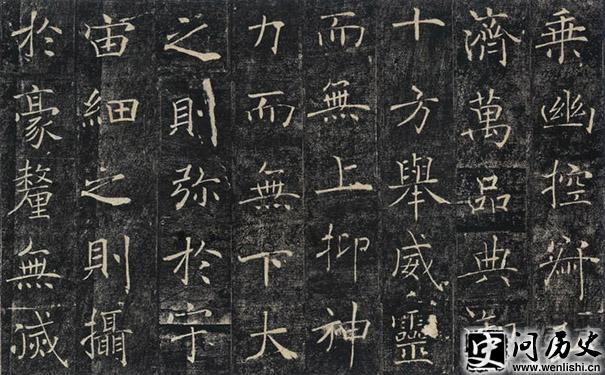 乘幽控寂
濟萬品典
十方舉威靈
而無上抑神
力而無下大
之則弥於宇
宙細之則攝
於豪釐無滅
问历史
www.wenlishi.cn